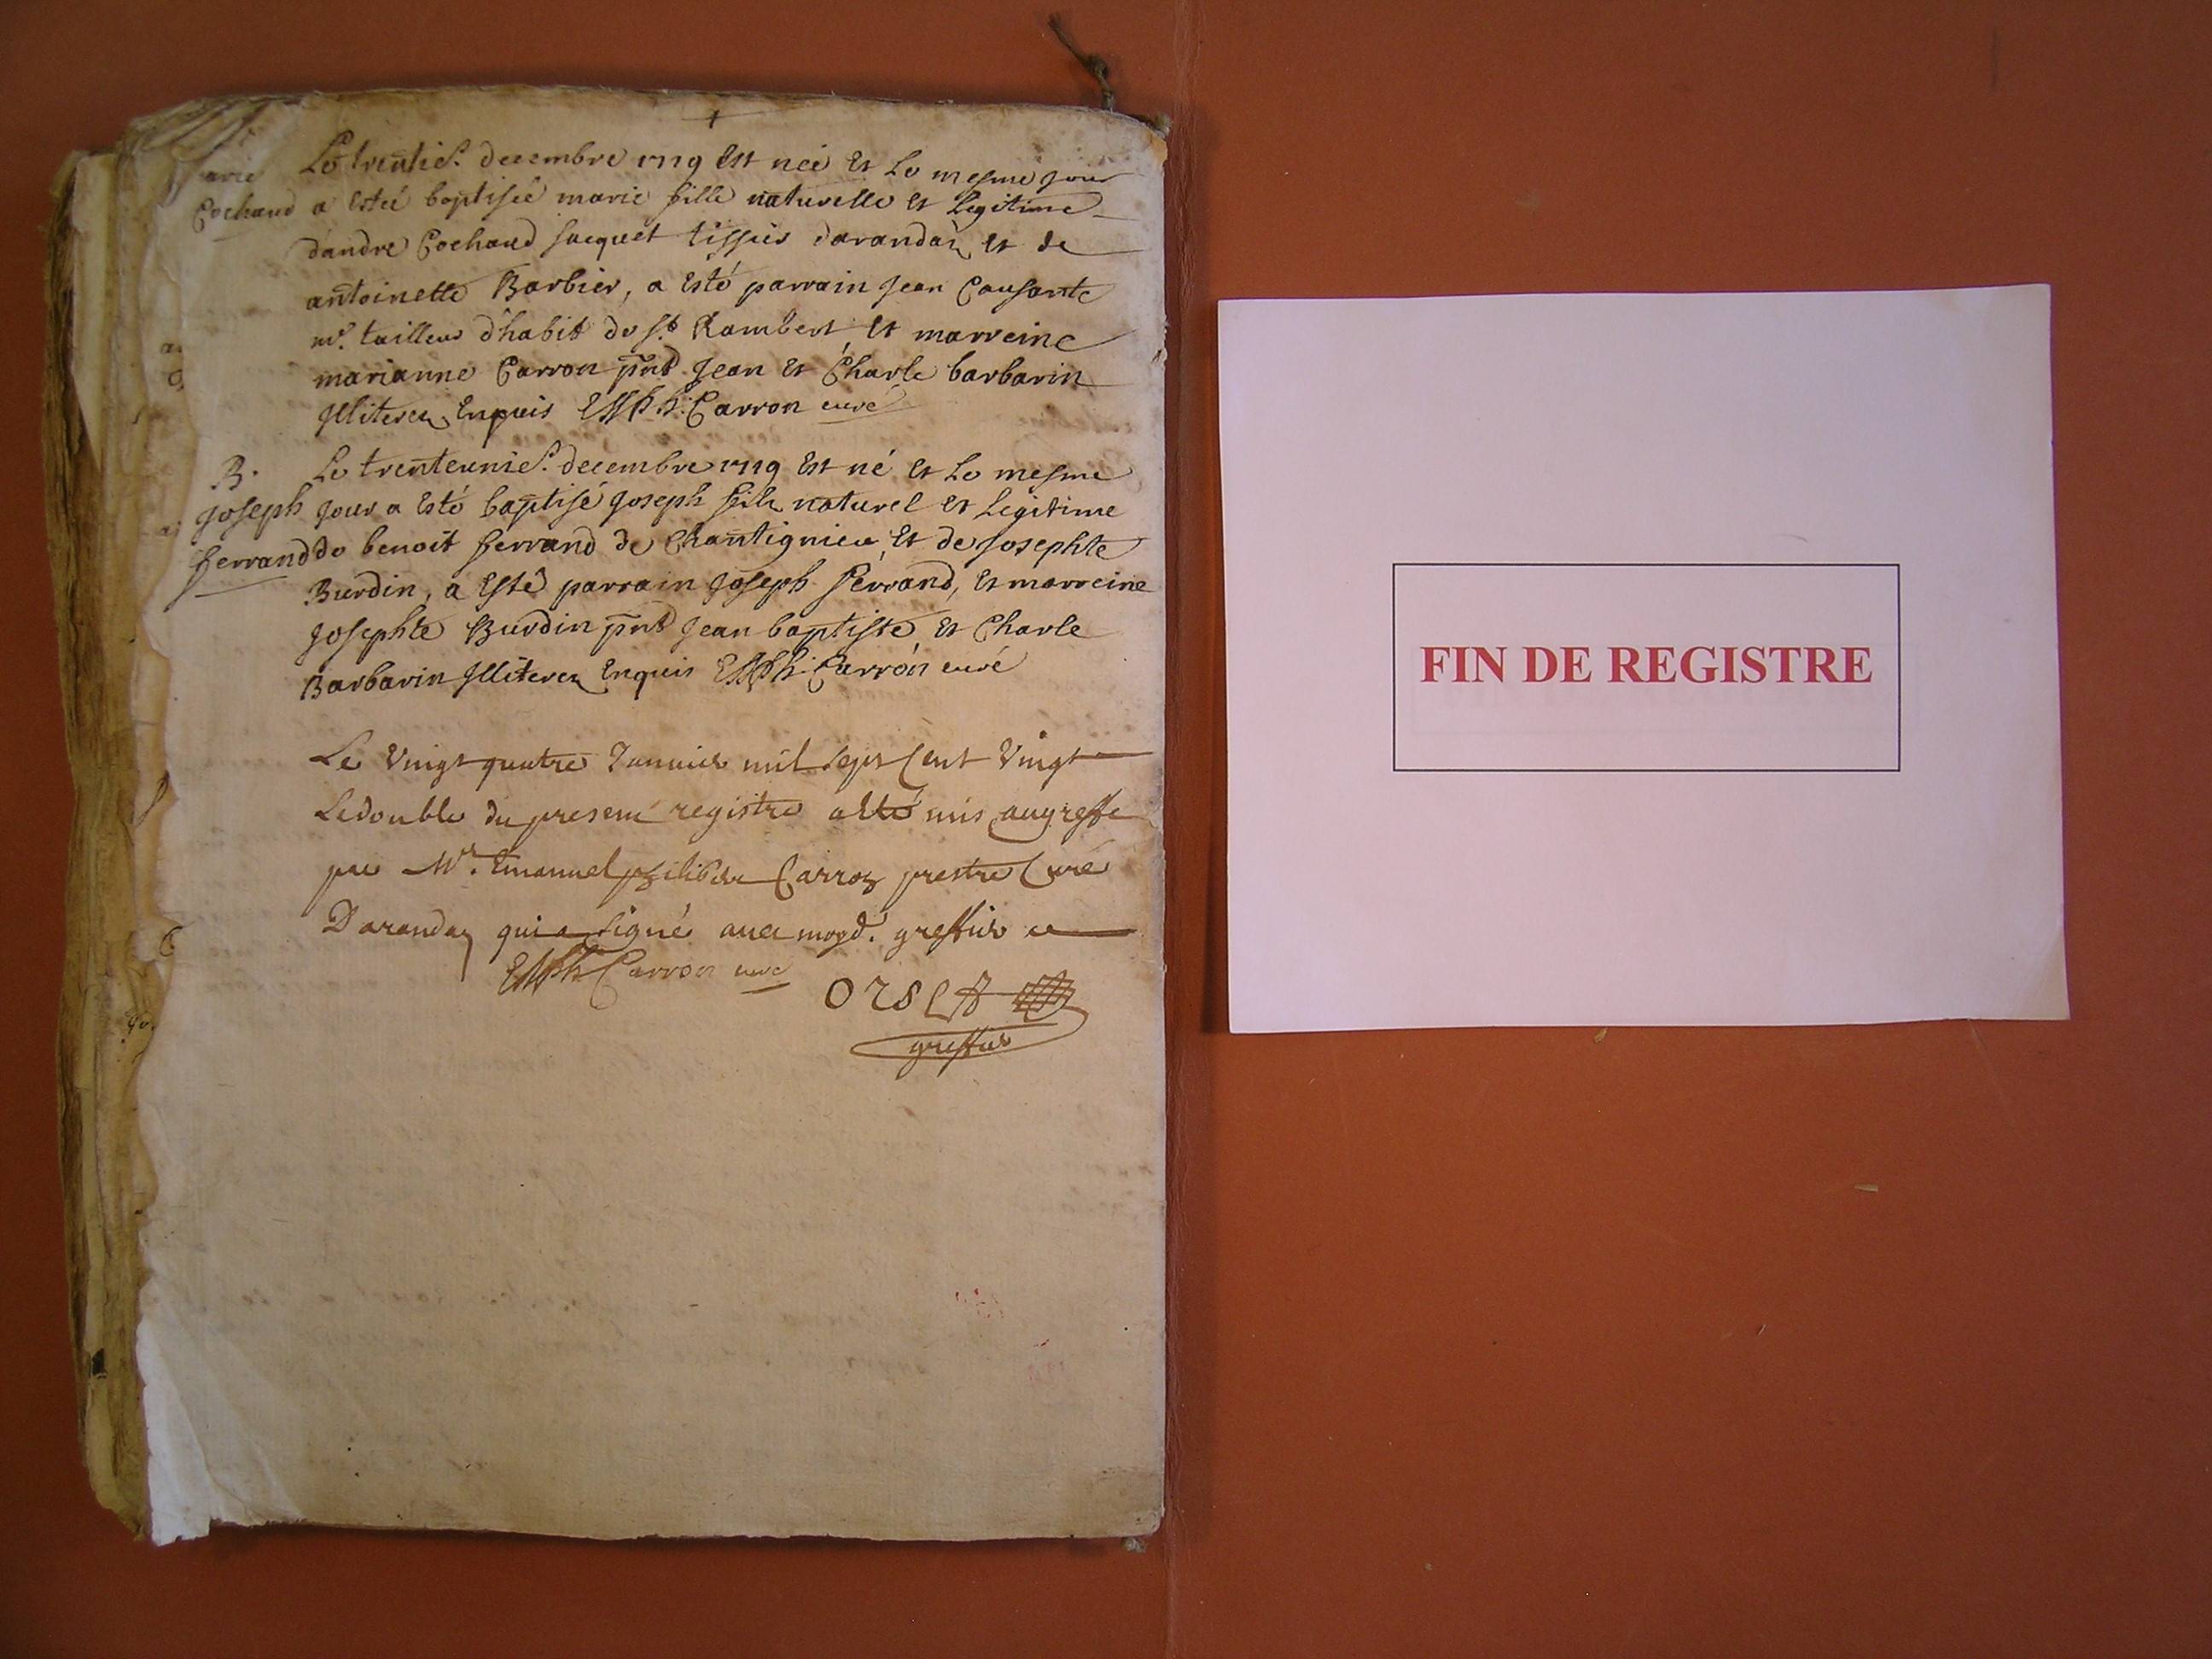 arie Le trentie. decembre 1719 est née et le mesme jour
Cochaud a estéé baptisée marie fille naturelle et legitime
dandré Cochaud jacquet tissier darandaz et de
antoinette Barbier, a esté parrain jean Causante
mr. tailleur d'habit de st. Rambert et marreine
marianne Carron pnt jean et Charle barbarin
illiterez enquis EMPh: Carron curé
B. Le trenteunie. decembre 1719 est né et le mesme
joseph jour a esté baptisé joseph fils naturel et legitime
ferrand de benoit ferrand de Chantignieu, et de josephte
Burdin, a esté parrain joseph ferrand, et marreine
josephte Burdin pnt jean baptiste et Charle
Barbarin illiterez enquis EMPh: Carron curé
Le Vingt quatre Januier mil sept Cent Vingt
Le double du present registre a esté mis au greffe
par Mre. Emanuel philibert Carron prestre Curé
Darandaz qui a signé auec moyd. greffier
EMPh Carron curé
greffier
FIN DE REGISTRE